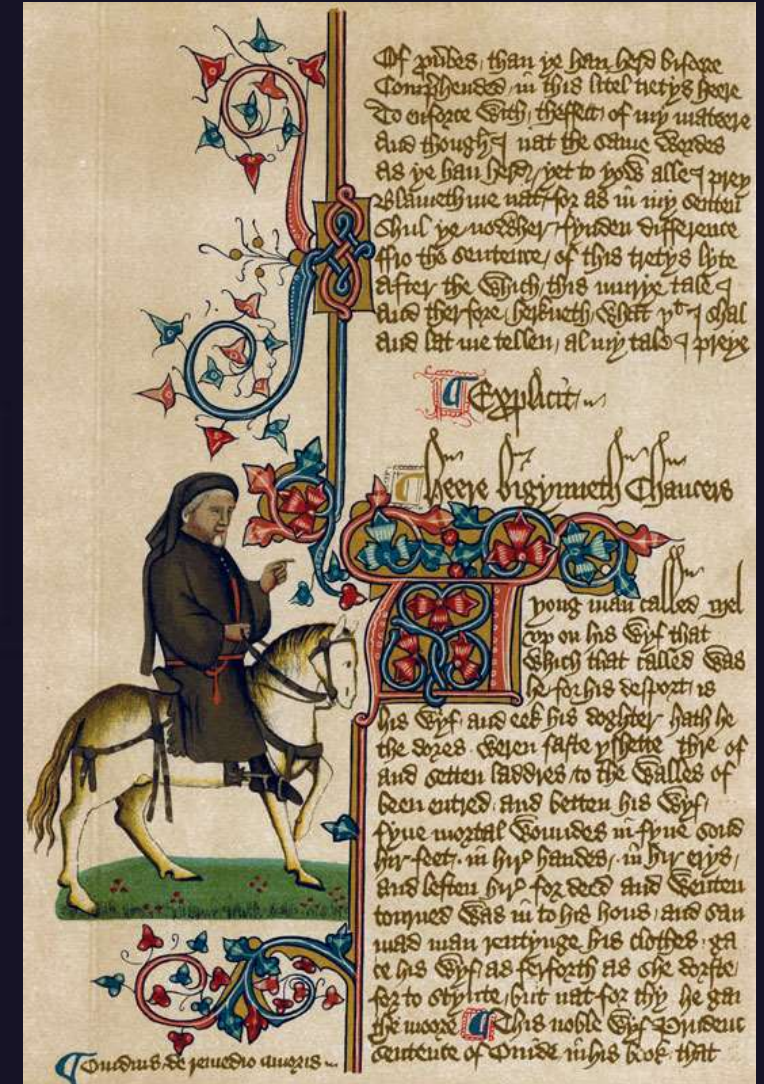 Of prūbes than ye han herd bifore
Comprehended in this litel tretys heere
To enforce with theffect of my mateere
And though I nat the same wordes
As ye han herd / yet to yow alle I prey
Blameth me nat / for as in my senten
Shul ye nowher fynden difference
ffro the sentence / of this tretys lyte
After the which / this murye tale I
And therfore / herkneth what þt I shal
And lat me tellen / al my tale I preye
Explicit
heere bigynneth Chaucers
yong man called Mel
vp on his wyf that
which that called was
he for his desport is
his wyf and eek his doghter hath he
the dores weren faste yshette thre of
and setten laddres to the walles of
been entred and betten his wyf /
fyue mortal woundes in fyue sond
hir feet / in hir handes / in hir erys /
and leften hir for deed and wenten
torned was in to his hous / and san
mad man rentynge his clothes / ga
ce his wyf / as ferforth as she dorste /
for to stynte / but nat for thy he gan
the moore This noble wyf Prudenc
sentence of Ouide in his book that
Ouidius de remedio amoris